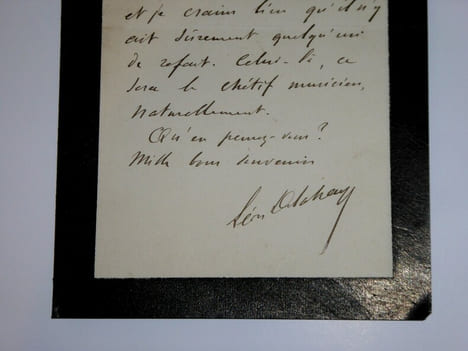 et je crains bien qu'il n'y
ait sûrement quelqu'un
de refait. Celui-là, ce
sera le chétif musicien,
naturellement.
Qu'en pensez-vous?
Mille bons souvenirs
Léon Delahaye